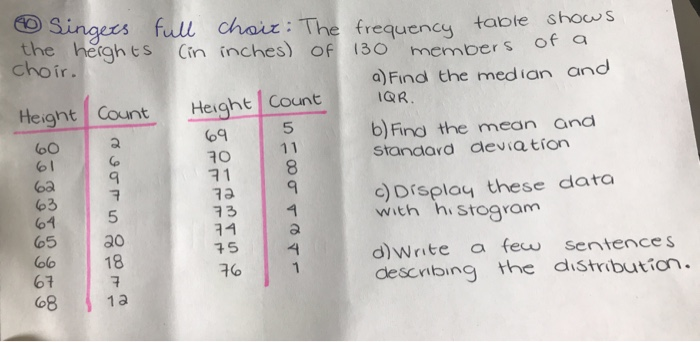 40 Singers full choir: The frequency table shows
the heights (in inches) of 130 members of a
choir.
a) Find the median and
IQR.
b) Find the mean and
standard deviation
c) Display these data
with histogram
d) Write a few sentences
describing the distribution.
Height Count
60 2
61 6
62 9
63 7
64 5
65 20
66 18
67 7
68 12
Height Count
69 5
70 11
71 8
72 9
73 4
74 2
75 4
76 1